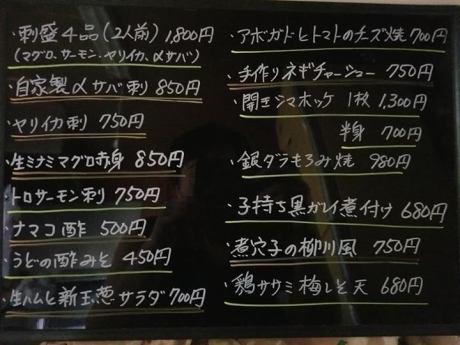 ・刺盛4品(2人前) 1,800円
(マグロ、サーモン、ヤリイカ、〆サバ)
・自家製〆サバ刺 850円
・ヤリイカ刺 750円
・生ミナミマグロ赤身 850円
・トロサーモン刺 750円
・ナマコ酢 500円
・うどの酢みそ 450円
・生ハムと新玉葱サラダ 700円
・アボガドとトマトのチーズ焼 700円
・手作りネギチャーシュー 750円
・開きシマホッケ 1枚 1,300円
半身 700円
・銀ダラもろみ焼 980円
・子持ち黒ガレイ煮付け 680円
・煮穴子の柳川風 750円
・鶏ササミ梅しそ天 680円